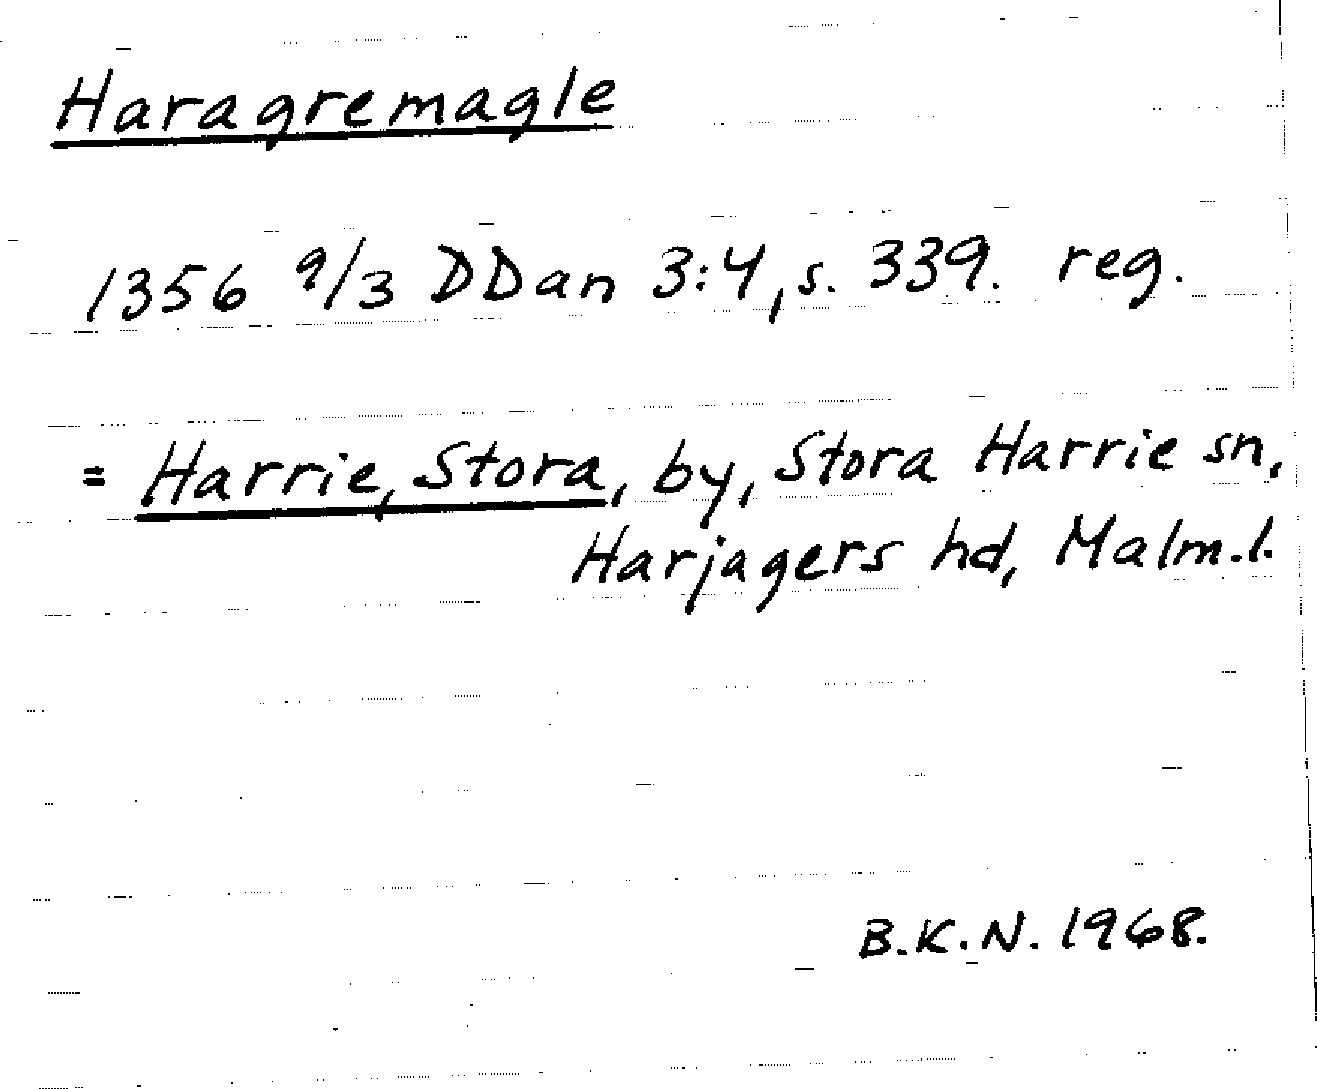 Haragremagle
1356 9/3 DDan 3:4, s. 339. reg.
= Harrie, Stora, by, Stora Harrie sn,
Harjagers hd, Malm.l.
B.K.N. 1968.